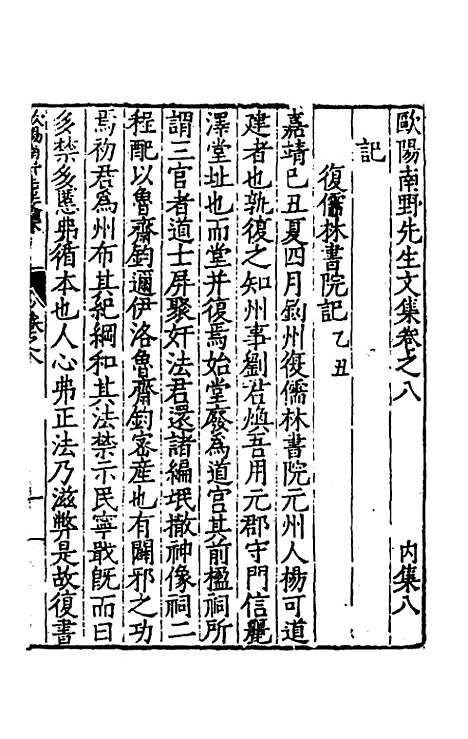 歐陽南野先生文集卷之八　内集八
記
復儒林書院記乙丑
嘉靖己丑夏四月鈞州復儒林書院元州人楊可道
建者也孰復之知州事劉君煥吾用元郡守門信麗
澤堂址也而堂并復焉始堂廢為道宮其前楹祠所
謂三官者道士屏聚奸法君還諸編垊撤神像祠二
程配以魯齋鈞邇伊洛魯齋鈞密產也有闢邪之功
焉初君為州布其紀綱和其法禁示民寧戢既而曰
多禁多慝弗循本也人心弗正法乃滋弊是故復書